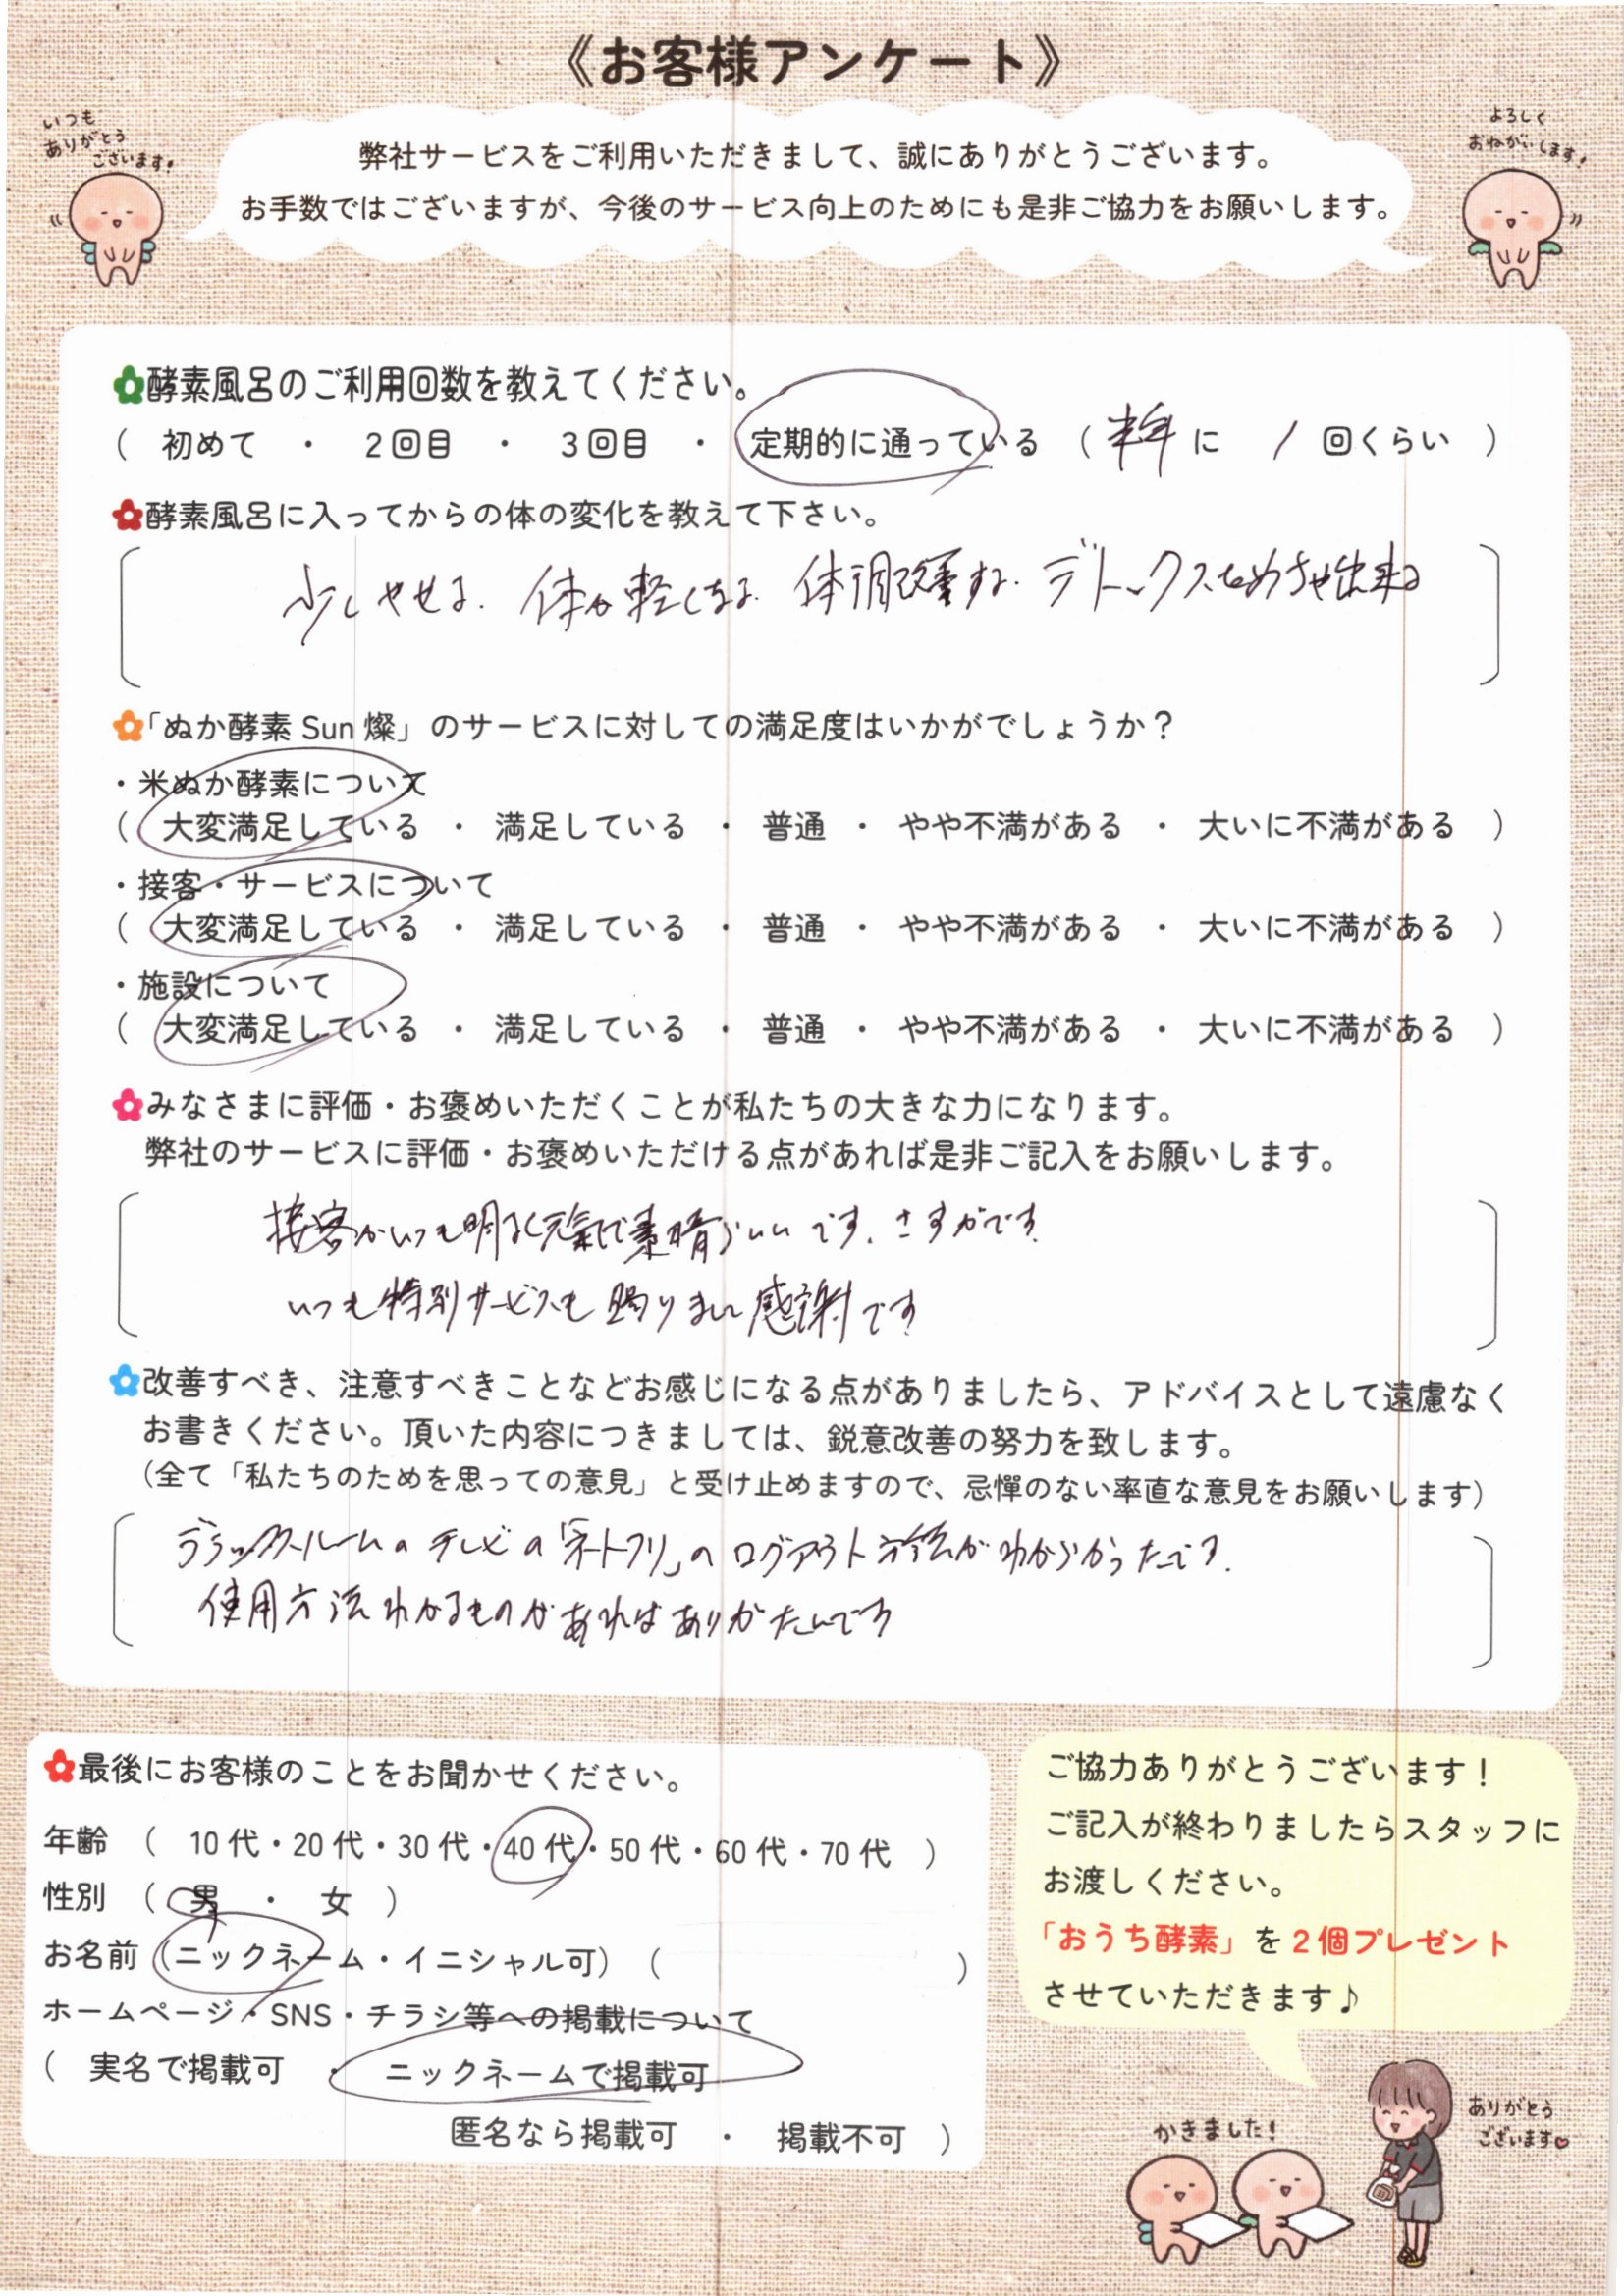 《お客様アンケート》
いつも
ありがとう
ございます!
よろしく
おねがいします!
弊社サービスをご利用いただきまして、誠にありがとうございます。
お手数ではございますが、今後のサービス向上のためにも是非ご協力をお願いします。
酵素風呂のご利用回数を教えてください。
( 初めて ・ 2回目 ・ 3回目 ・ 定期的に通っている ( 半年 に 1 回くらい )
酵素風呂に入ってからの体の変化を教えて下さい。
少しやせる. 体が軽くなる. 体調改善する. デトックスをめざせ出来る
「ぬか酵素 Sun 燦」のサービスに対しての満足度はいかがでしょうか?
・米ぬか酵素について
( 大変満足している ・ 満足している ・ 普通 ・ やや不満がある ・ 大いに不満がある )
・接客・サービスについて
( 大変満足している ・ 満足している ・ 普通 ・ やや不満がある ・ 大いに不満がある )
・施設について
( 大変満足している ・ 満足している ・ 普通 ・ やや不満がある ・ 大いに不満がある )
みなさまに評価・お褒めいただくことが私たちの大きな力になります。
弊社のサービスに評価・お褒めいただける点があれば是非ご記入をお願いします。
接客がいつも明るく元氣で素晴らしいです. さすがです.
いつも特別サービスも賜りまして感謝です
改善すべき、注意すべきことなどお感じになる点がありましたら、アドバイスとして遠慮なく
お書きください。頂いた内容につきましては、鋭意改善の努力を致します。
(全て「私たちのためを思っての意見」と受け止めますので、忌憚のない率直な意見をお願いします)
テレビの「ネトフリ」のログアウト方法がわからなかったです.
使用方法わかるものがあればありがたいです
最後にお客様のことをお聞かせください。
年齢 ( 10代・20代・30代・40代・50代・60代・70代 )
性別 ( 男 ・ 女 )
お名前(ニックネーム・イニシャル可) ( )
ホームページ・SNS・チラシ等への掲載について
( 実名で掲載可 ・ ニックネームで掲載可
匿名なら掲載可 ・ 掲載不可 )
ご協力ありがとうございます!
ご記入が終わりましたらスタッフに
お渡しください。
「おうち酵素」を2個プレゼント
させていただきます♪
かきました!
ありがとう
ございます♥